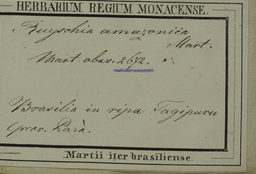 HERBARIUM REGIUM MONACENSE.
Ruyschia amazonica
Mart.
Mart. obsv. 2672.
Brasilia in ripa Tagipuru
prov. Parà.
Martii iter brasiliense.